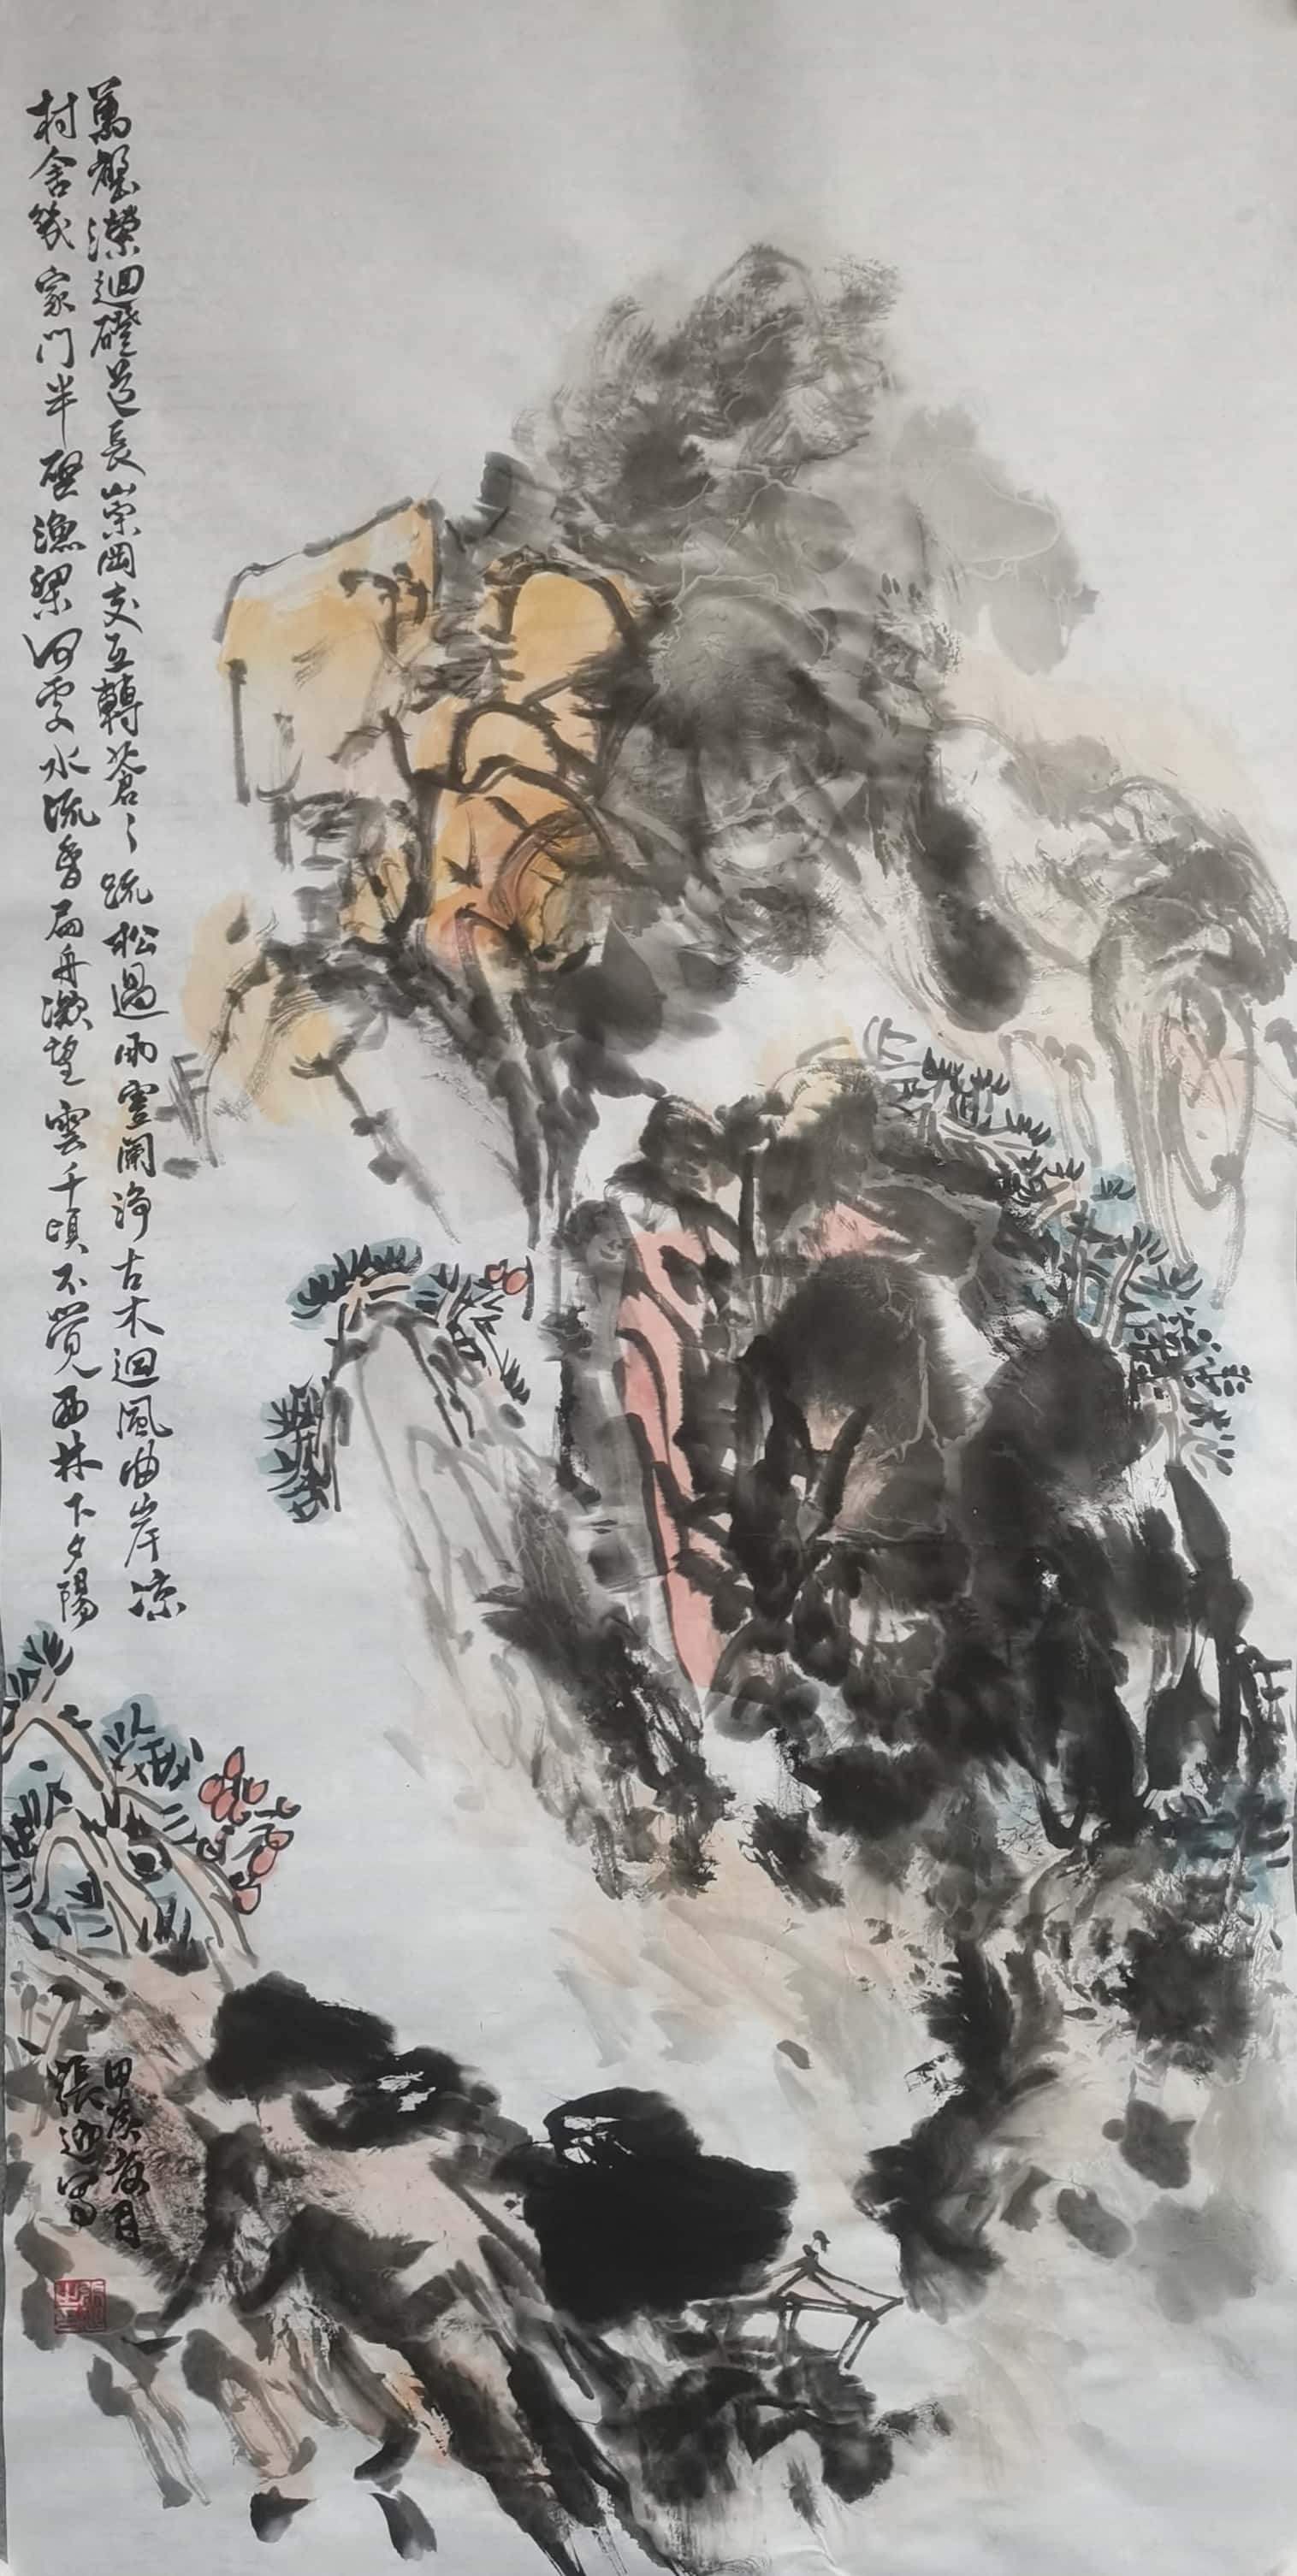 萬壑瀠迴磴道長崇岡交互轉蒼々疏松過雨虛闌淨古木迴風曲岸涼
村舍幾家門半壁漁梁何處水流香扁舟凝望雲千頃不覺西林下夕陽
甲辰放月
張迎寫